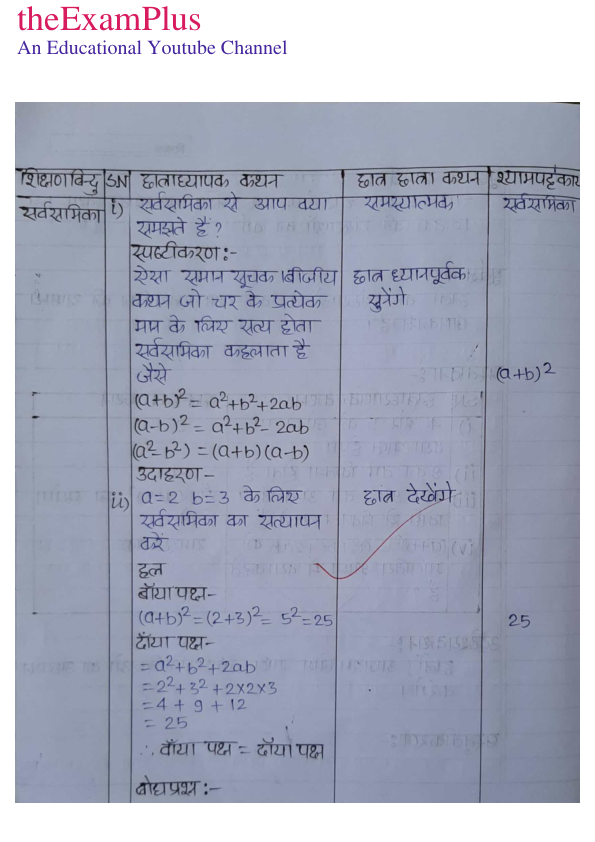 theExamPlus
An Educational Youtube Channel
शिक्षणबिन्दु SN छात्राध्यापक कथन छात्र छात्रा कथन श्यामपट्टकार्य
सर्वसमिका i) सर्वसमिका से आप क्या समस्यात्मक सर्वसमिका
समझते हैं?
स्पष्टीकरण:-
ऐसा समान सूचक बीजीय छात्र ध्यानपूर्वक
कथन जो चर के प्रत्येक सुनेंगे
मान के लिए सत्य होता
सर्वसमिका कहलाता है
जैसे (a+b)²
(a+b)² = a²+b²+2ab
(a-b)² = a²+b²-2ab
(a²-b²) = (a+b)(a-b)
उदाहरण-
ii) a=2 b=3 के लिए छात्र देखेंगे
सर्वसमिका का सत्यापन
करें
हल
बाँया पक्ष-
(a+b)² = (2+3)² = 5² = 25 25
दाँया पक्ष-
= a²+b²+2ab
= 2²+3²+2×2×3
= 4 + 9 + 12
= 25
∴ बाँया पक्ष = दाँया पक्ष
बोधप्रश्न:-